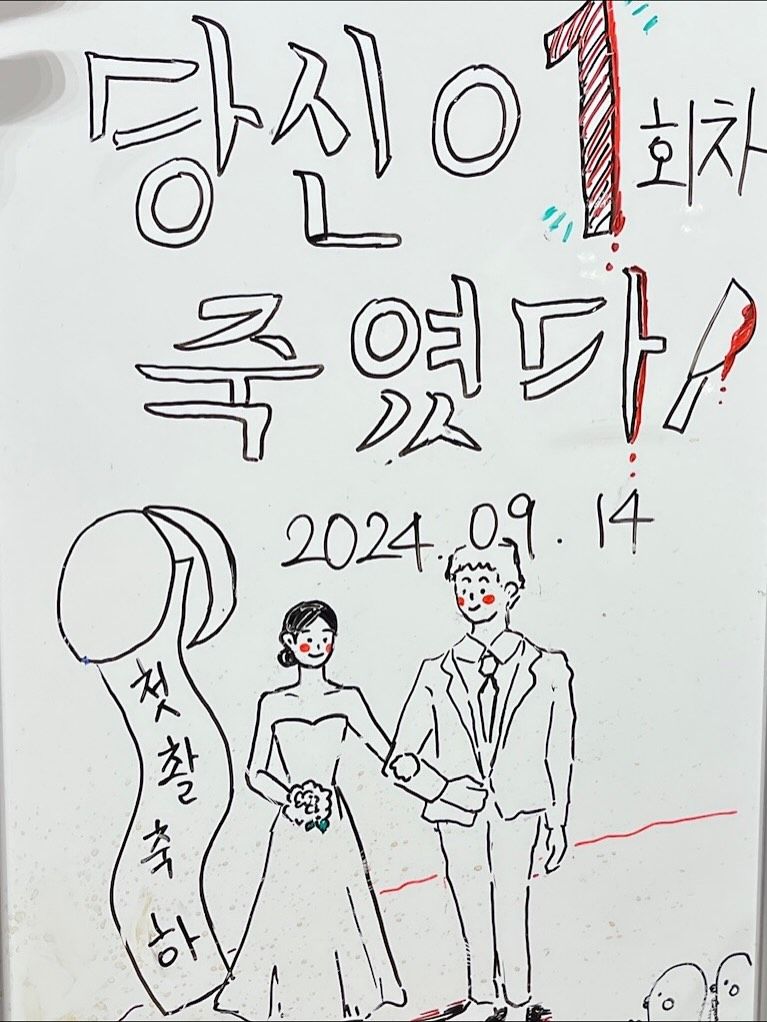 당신이 1회차
죽였다
2024.09.14
첫
촬
축
하